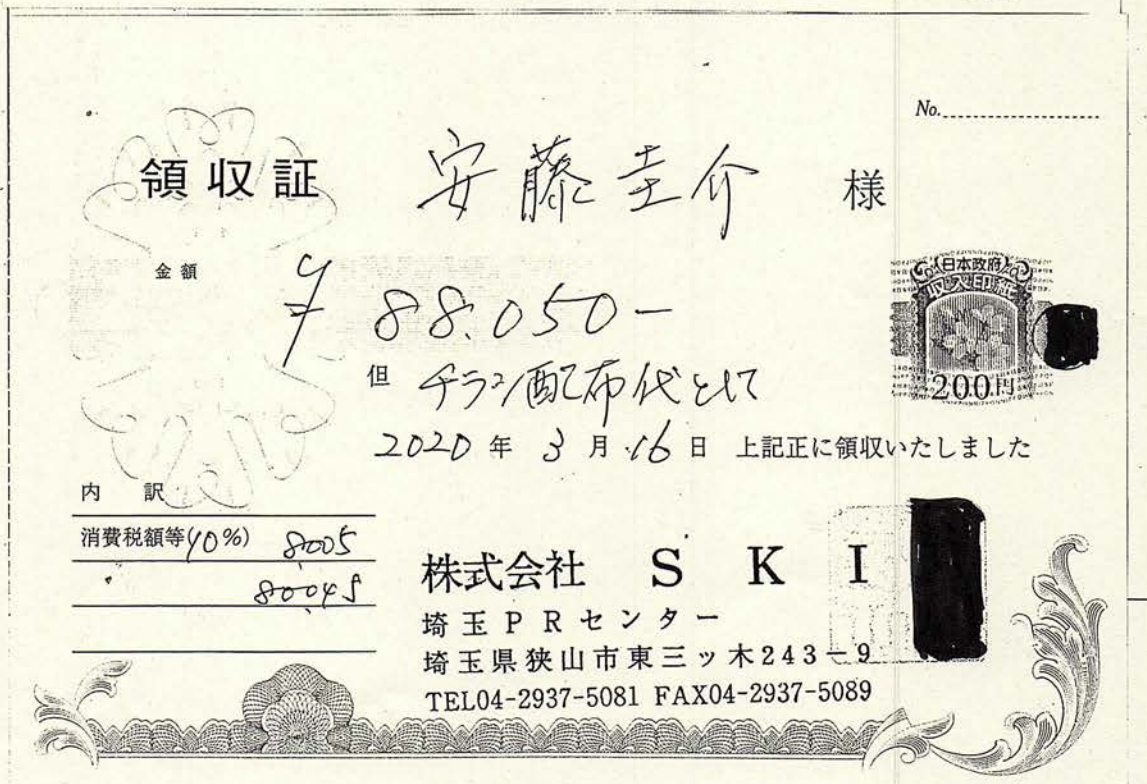 No.
領収証 安藤圭介 様
金額 ¥88.050-
日本政府
収入印紙
200円
但 チラシ配布代として
2020年 3月 16日 上記正に領収いたしました
内訳
消費税額等(10%) 8,005
80,045
株式会社 SKI
埼玉PRセンター
埼玉県狭山市東三ッ木243-9
TEL04-2937-5081 FAX04-2937-5089